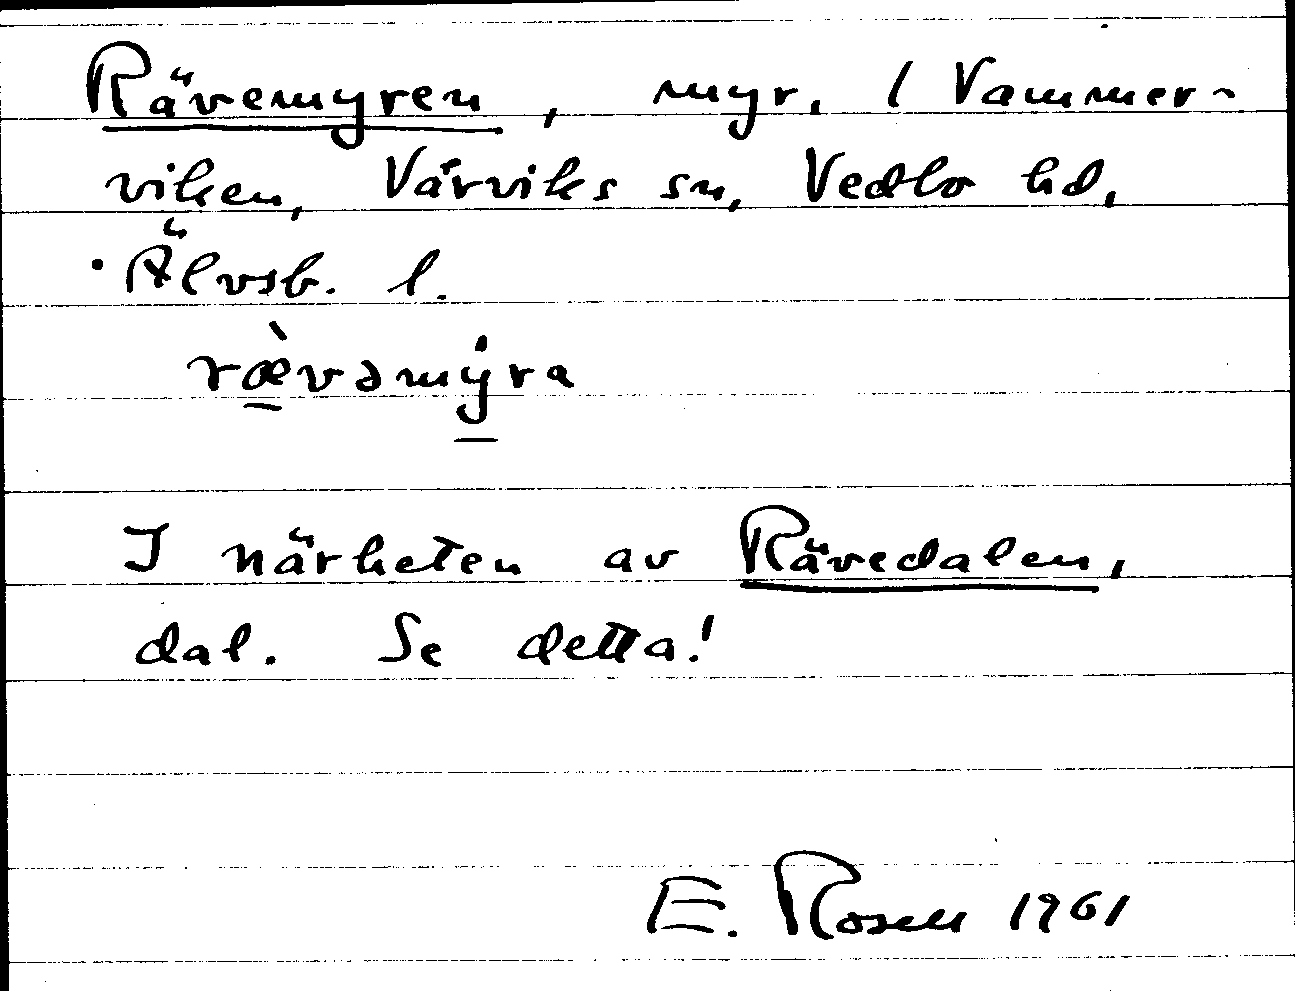 Rävemyren, myr. / Vammer-
viken, Vårviks sn, Vedbo hd,
Älvsb. l.
ræ̀vəmýra
I närheten av Rävedalen,
dal. Se detta!
E. Rosen 1961